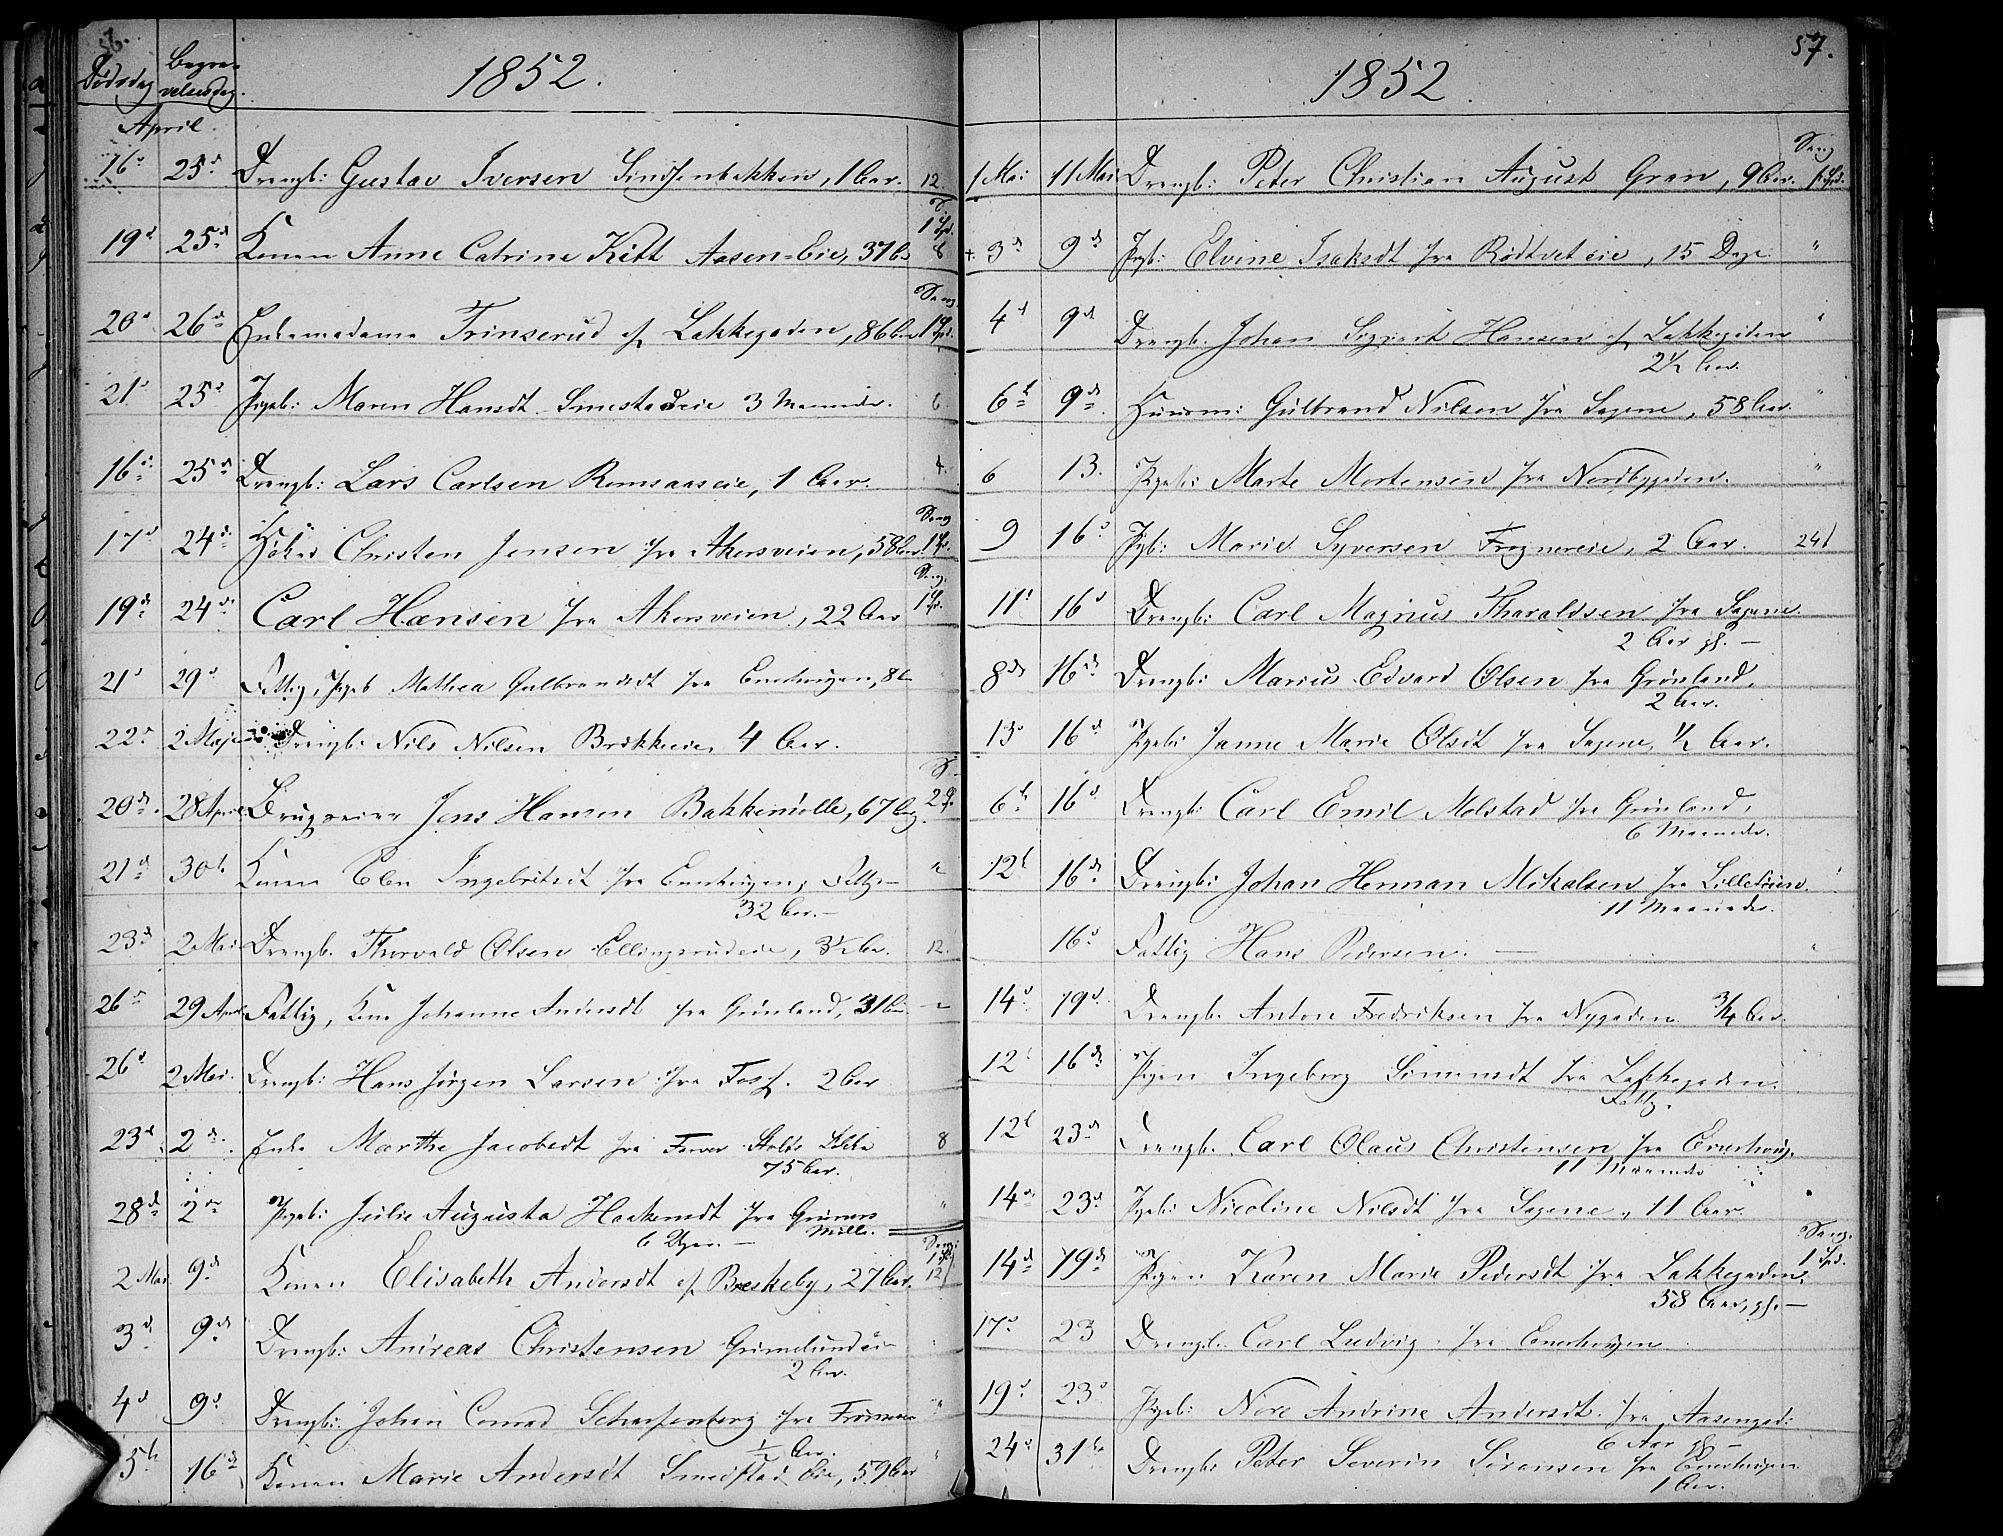 56.
Dødsdag Begravelsesdag. 1852.
April.
16d 25d Drengb: Gustav Iversen Sinsenbakken, 1 Aar. 12.
19d 25d Konen Anne Catrine Kitt Aasen-Eie, 37 1 Spd. 6
20d 26d Enkemadame Trinserud af Lakkegaden, 86 Aar Sang. 1 Spd.
21d 25d Pigeb: Maren Hansdt. Smestadeie 3 Maaneder. 6
16d 25d Drengb: Lars Carlsen Romsaaseie, 1 Aar. 4.
17d 24d Høker Christen Jensen fra Akersveien, 58 Aar Sang
19d 24d Carl Hansen fra Akersveien, 22 Aar Sang.
21d 29d Fattig, Pigeb Mathea Gulbrandsdt fra Enerhaugen,
22d 2 Maj Drengb: Nils Nilsen Brekkeeie, 4 Aar.
20d 28 April Jens Hansen Bakkemølle, 67
21d 30t Konen Elen Ingebritsdt fra Enerhaugen, Fattig
32 Aar.
23d 2 Mai Drengb. Thorvald Olsen Ellingsrudeie, 3½ 12.
26d 29 April Fattig, Kone Johanne Andersdt fra Grønland, 31 Aar
26d 2 Mai. Drengb: Hans Jørgen Larsen fra 2 Aar
23d 2d. Enke Marthe Jacobsdt fra 8
75 Aar.
28d 2d Pigeb: Julie Augusta Haakensdt fra Grüners
6 Uger. Mølle.
2 Mai 9d Konen Elisabeth Andersdt af Briskeby, 27 Aar. Sang: 12
3d 9d Drengb: Andreas Christensen Grimelundeie
2 Aar.
4d 9d Drengb: Johan Conrad Scharfenberg fra
½ Aar.
5t 16d Konen Marie Andersdt Smedstad Eie, 59 Aar
57.
1852.
1 Mai 11 Mai Drengb: Peter Christian August Gran, 9 Aar. Sang 1 Spd.
3d 9d Pigb: Elvine Isaksdt fra Rødtvet eie, 15 Dage. "
4d 9d Drengb. Johan Sigvart Hansen af Lakkegaden "
2½ Aar.
6t 9d Huusm: Gulbrand Nilsen fra Sagene, 58 Aar. "
6 13. Pigeb: Marte Mortensen fra Nordbygaden. "
9 16d Pigb: Marie Syversen Frognereie, 2 Aar. 24
11t 16d Drengb: Carl Magnus Tharaldsen fra Sagene.
2 Aar gl.
8d 16d Drengb: Marius Edvard Olsen fra Grønland,
2 Aar.
13d 16d Pigeb: Janne Marie Olsdt fra Sagene, ½ Aar.
6t 16d Drengb: Carl Emil Molstad fra Grønland,
6 Maaneder.
12t 16d Drengb: Johan Herman Mikalsen fra Lilletøien.
11 Maaneder.
16d Fattig Hans Pedersen. "
14d 19d Drengb. Anton Fredriksen fra Nygaden ¾ Aar.
12t 16d Pigen Ingeborg Simensdt fra Lakkegaden.
Fattig.
12t 23d Drengb. Carl Olaus Christensen fra Enerhaug.
11 Maaneder
14d 23d Pigeb: Nicoline Nilsdt fra Sagene, 11 Aar.
14d 19d Pigen Karen Marie Pedersdt fra Lakkegaden, Sang. 1 Spd.
58 Aar, gl.
17d 23 Drengb. Carl Ludvig fra Enerhaugen
19d 23d Pigeb: Nore Andrine Andersdt. fra Aasengad:
6 Aar gl
24d 31te Drengb: Peter Severin Sørensen fra Enerhaugen
1 Aar.